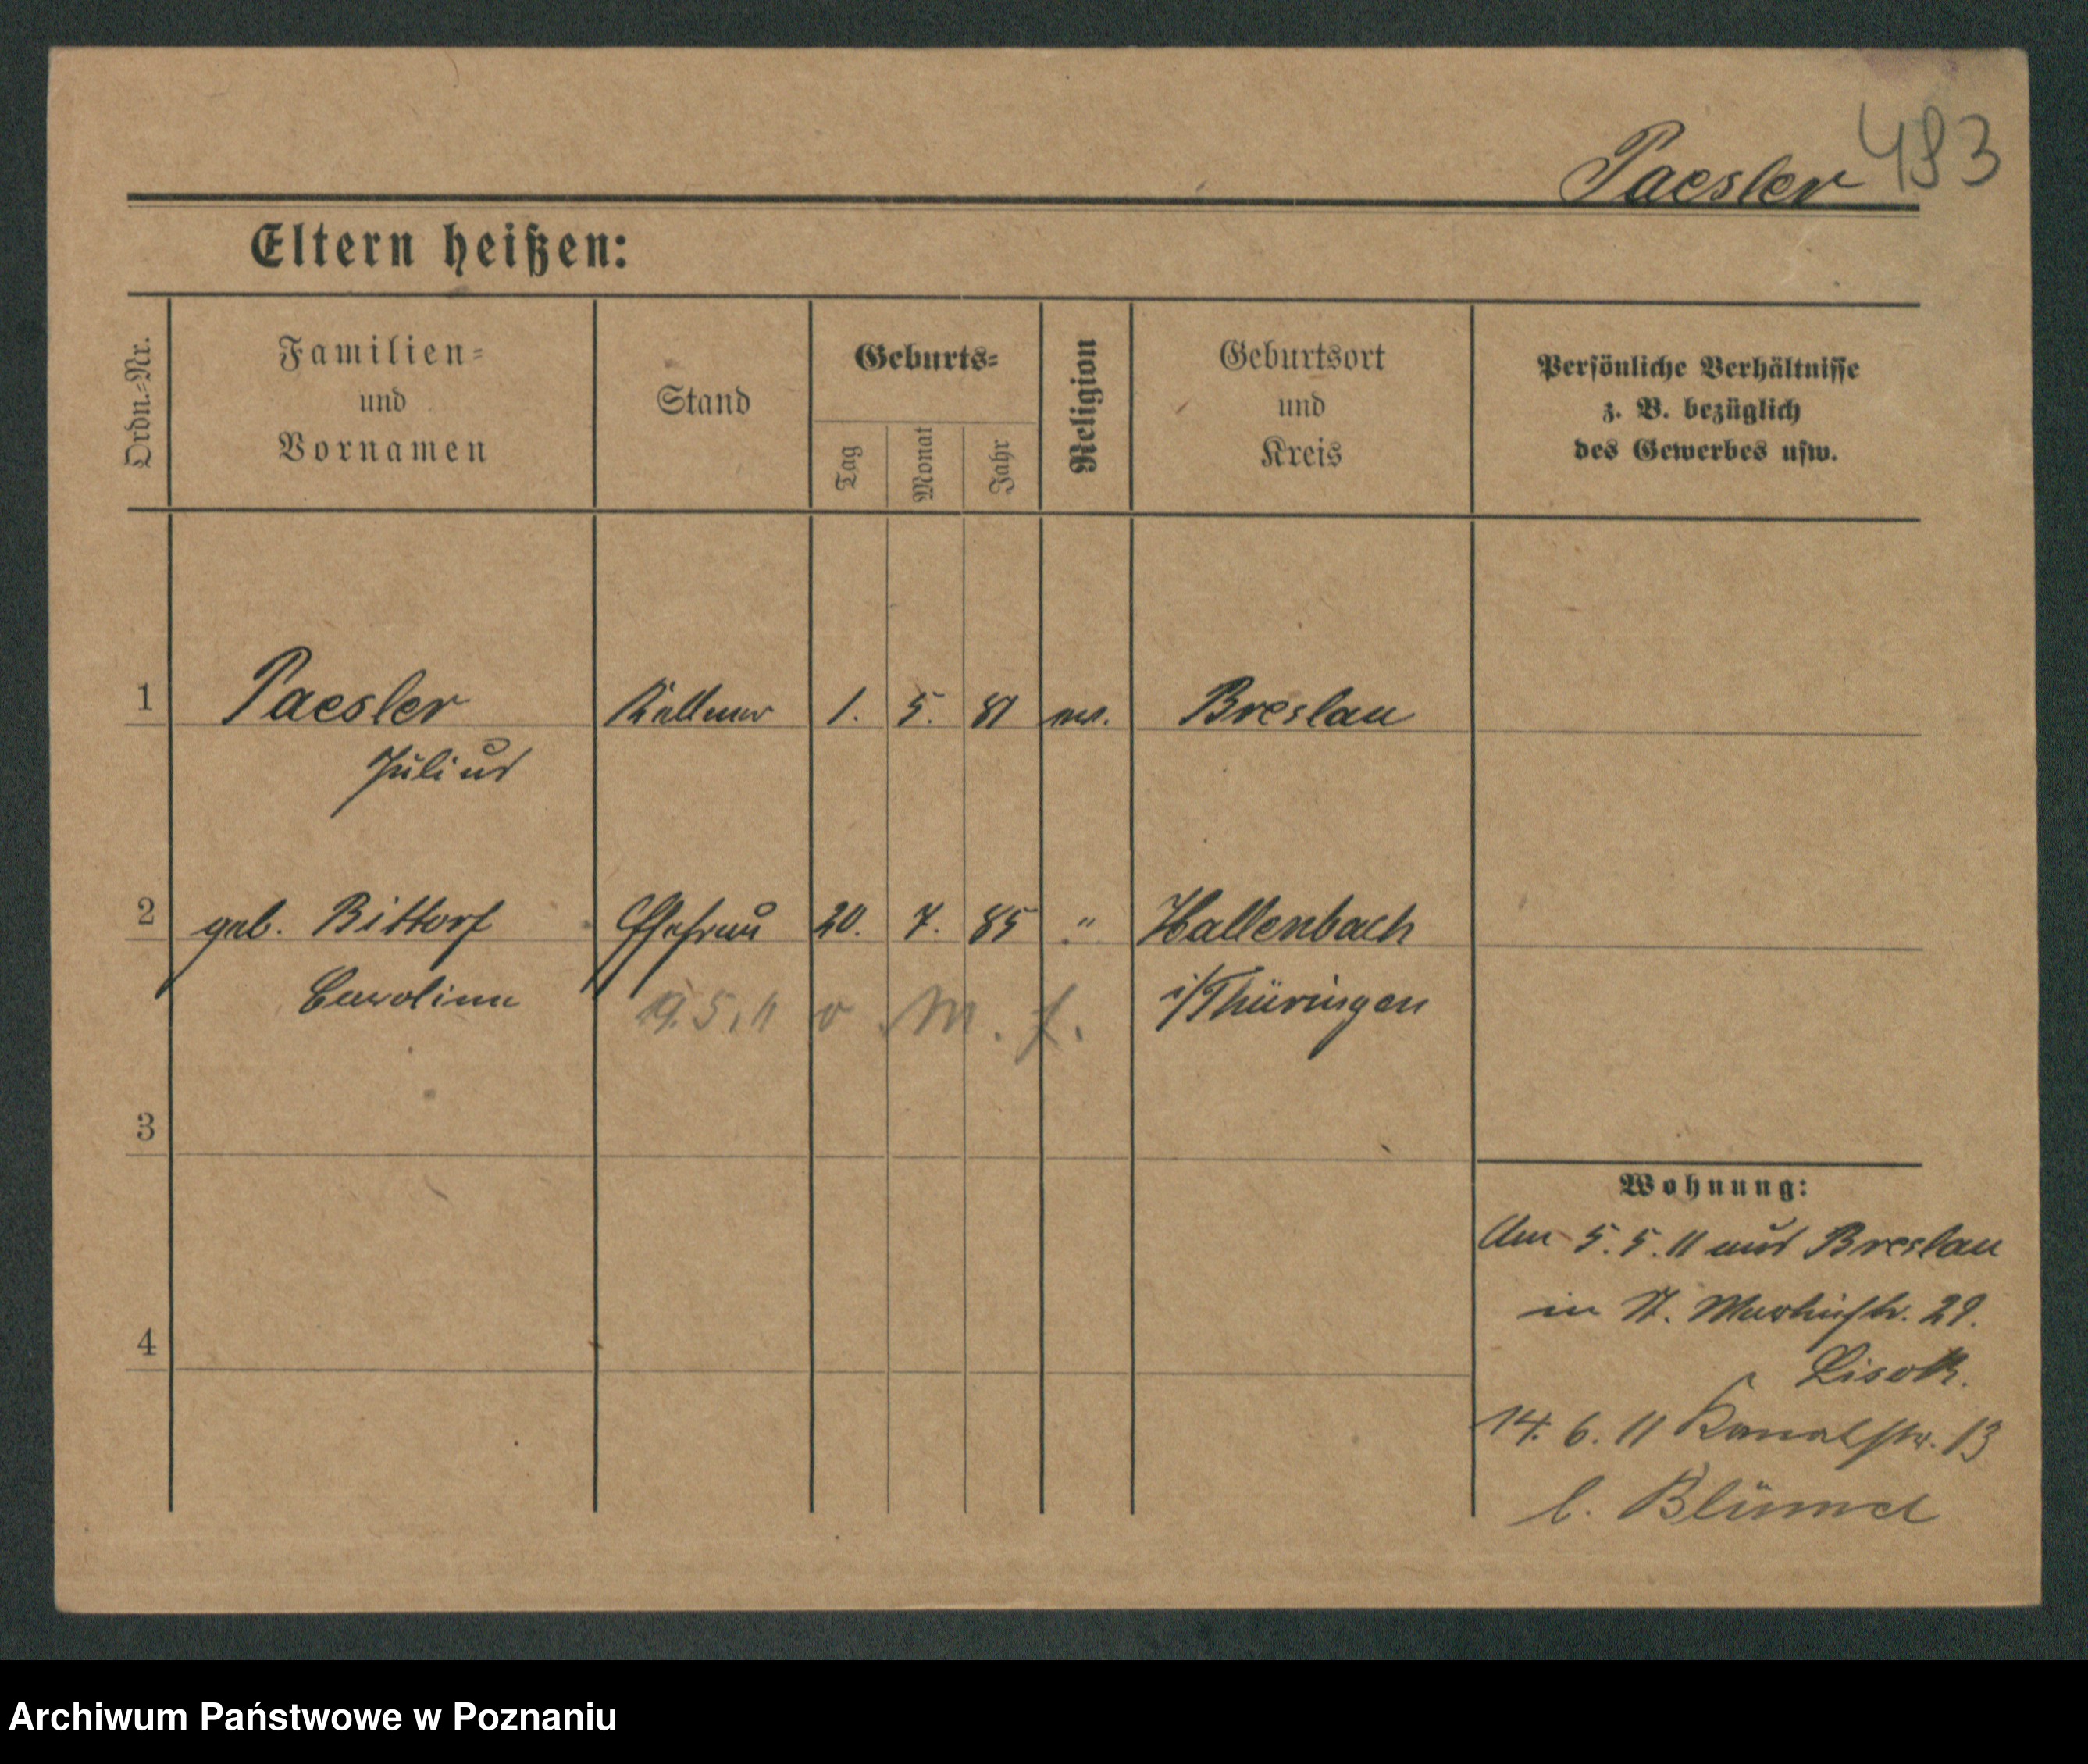 483
Paesler
Eltern heißen:
Ordn.-Nr.
Familien-
und
Vornamen
Stand
Geburts-
Tag
Monat
Jahr
Religion
Geburtsort
und
Kreis
Persönliche Verhältnisse
z. B. bezüglich
des Gewerbes usw.
1 Paesler Kellner 1. 5. 81 Breslau
Julius
2 geb. Bittorf Ehefrau 20. 7. 85 " Hallenbach
Caroline i/Thüringen
19.5.11 v M. f.
3
4
Wohnung:
Am 5.5.11 aus Breslau
in St. Martinstr. 29.
14.6.11 Kanalstr. 13
b. Blümel
Archiwum Państwowe w Poznaniu